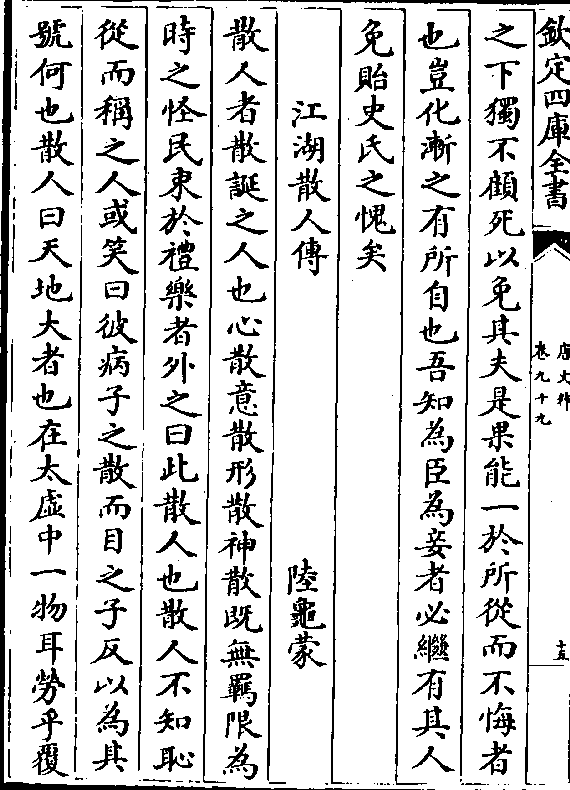 欽定四庫全書
唐文粹
卷九十九
十五
之下獨不顧死以免其夫是果能一於所從而不悔者
也豈化漸之有所自也吾知為臣為妾者必繼有其人
免貽史氏之愧矣
江湖散人傳 陸龜蒙
散人者散誕之人也心散意散形散神散既無羈限為
時之怪民束於禮樂者外之曰此散人也散人不知恥
從而稱之人或笑曰彼病子之散而目之子反以為其
號何也散人曰天地大者也在太虛中一物耳勞乎覆